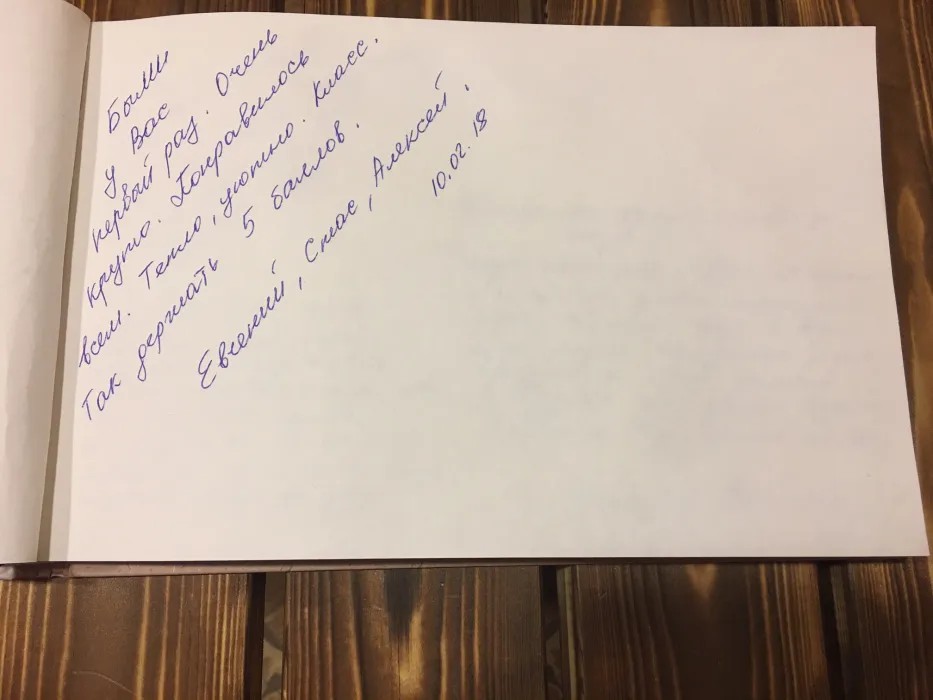 Были
у Вас
первый раз. Очень
круто. Понравилось
всем. Тепло, уютно. Класс.
Так держать 5 баллов.
Евгений, Стас, Алексей.
10.02.18